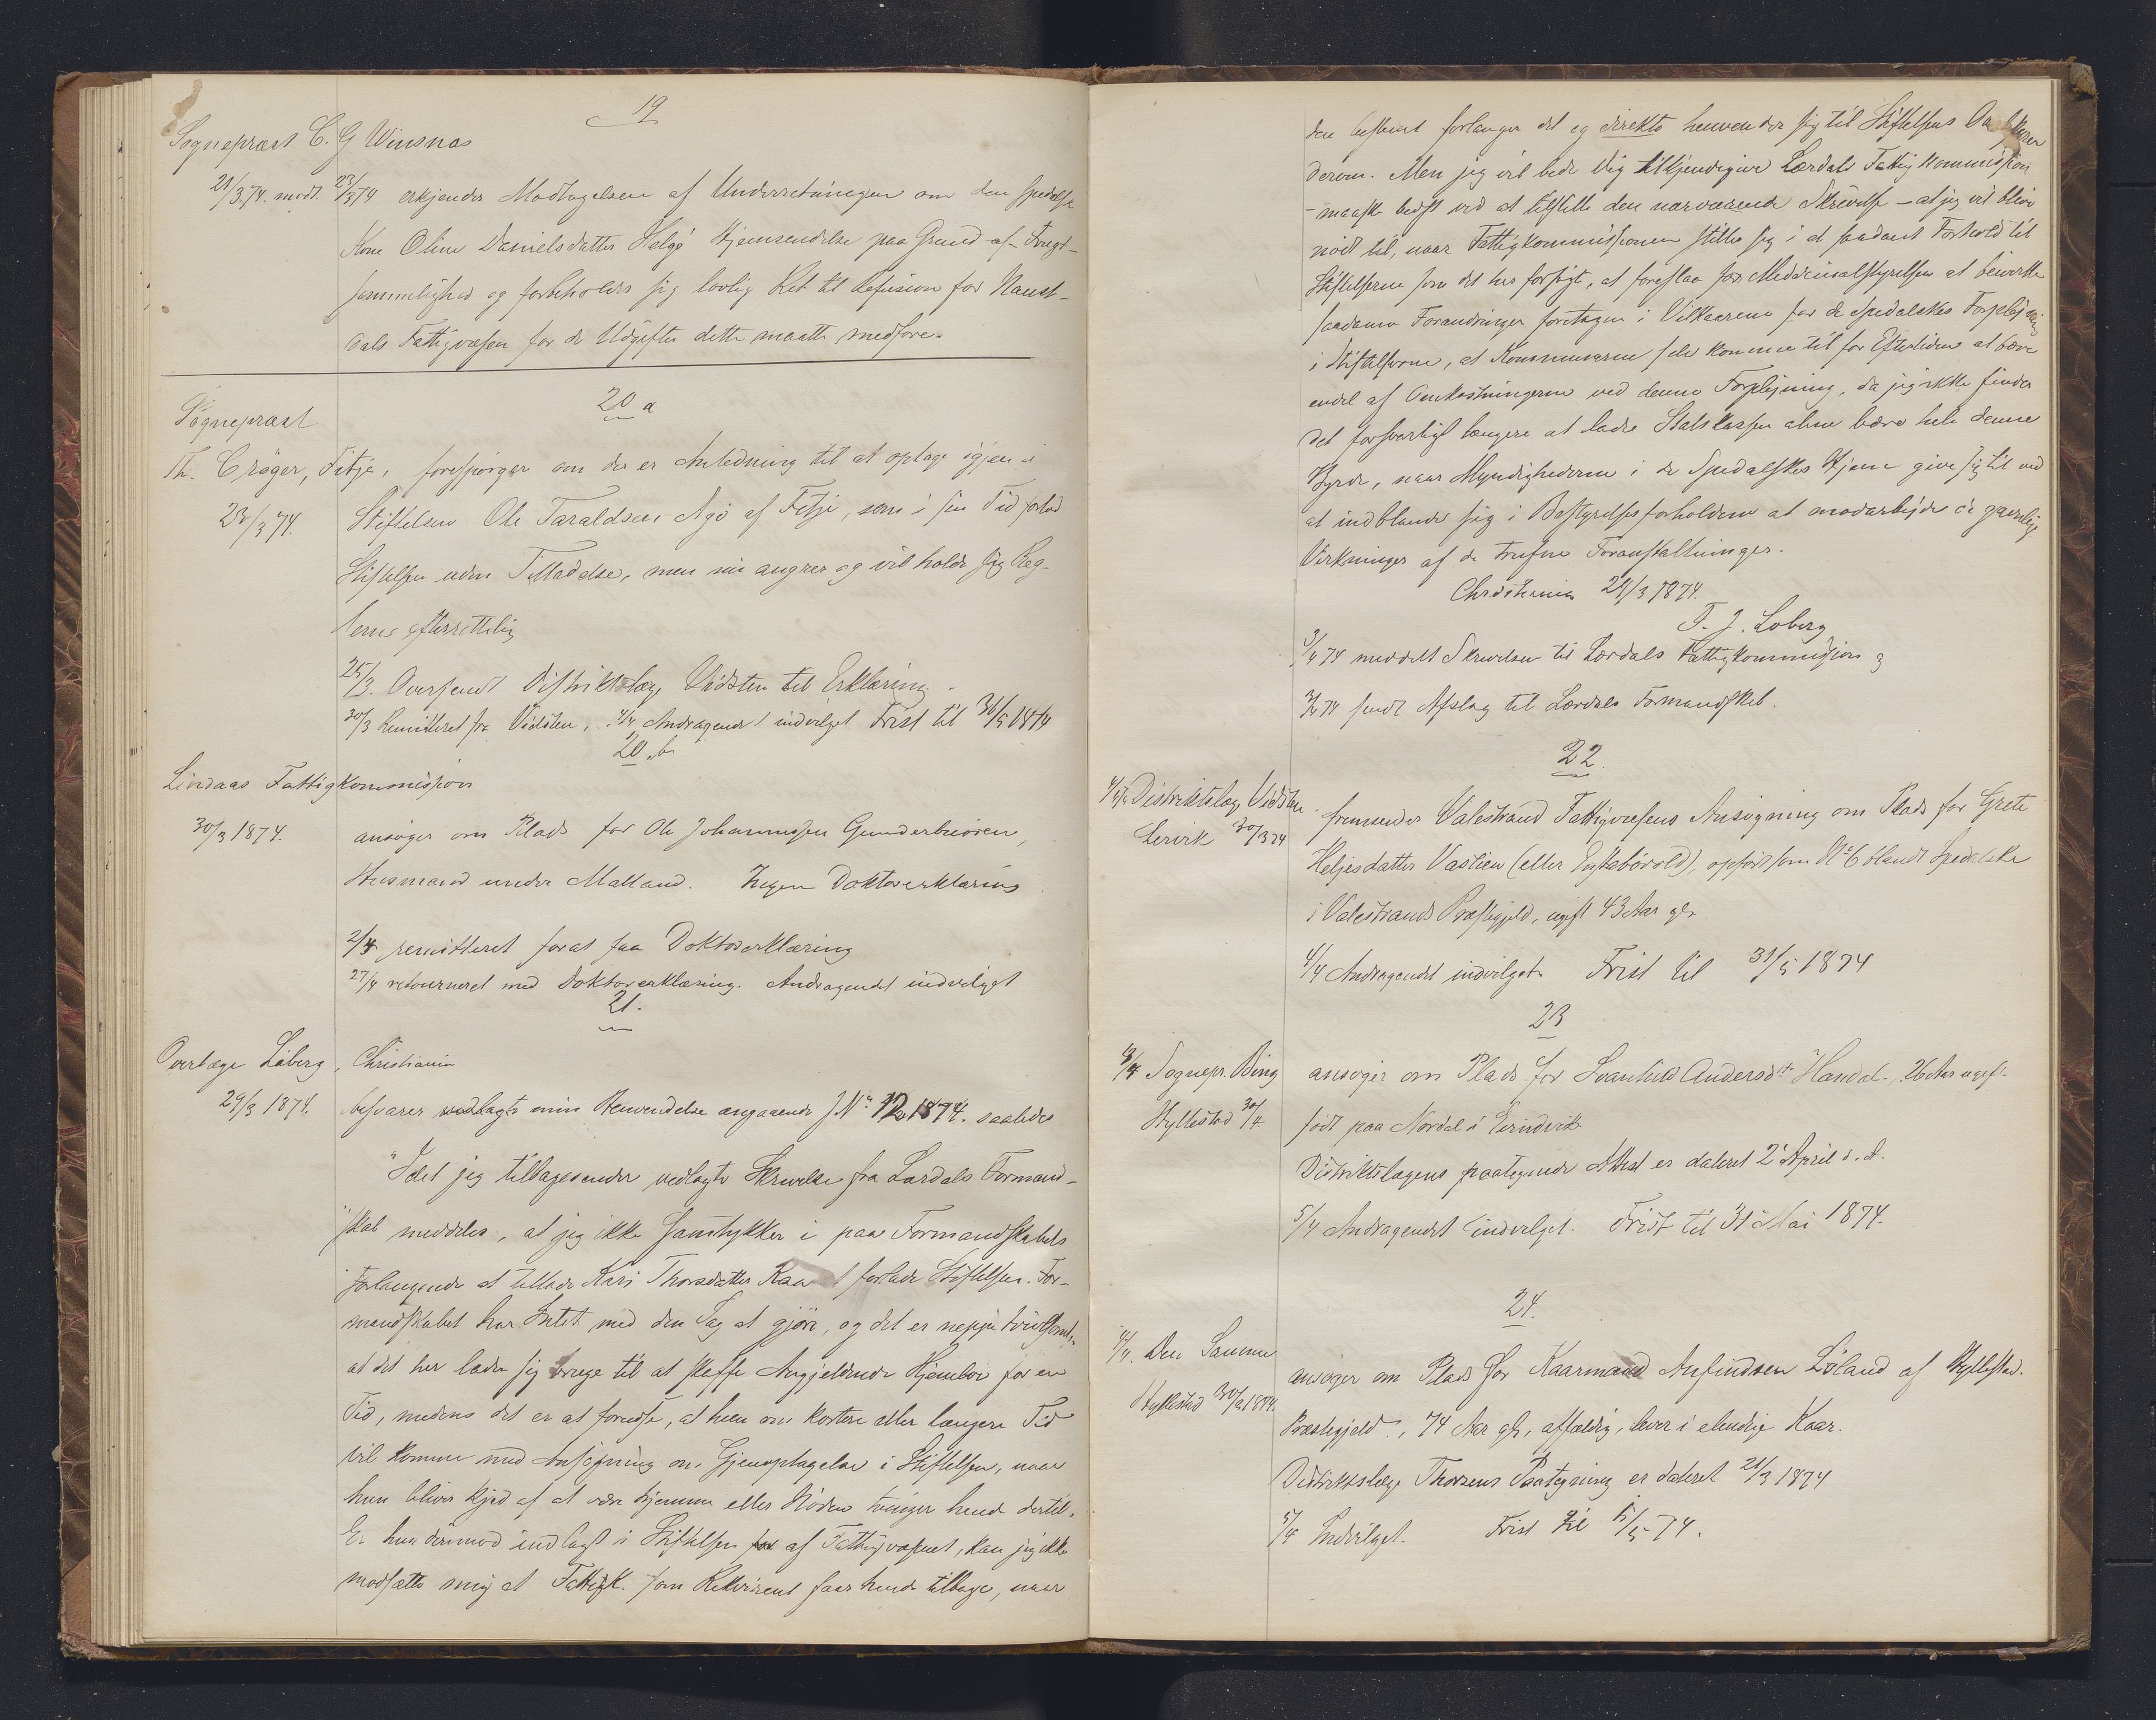 19
Sognepræst C. G Winsnæs
21/3.74. modt. 23/3 74 erkjender Modtagelsen af Underretningen om den spedalske
Kone Oline Danielsdatter Helgö Hjemsendelse paa Grund af Frugt-
sommelighed og forbeholder sig lovlig Ret til Refusion for Naust-
dals Fattigvæsen for de Udgifter dette maatte medføre.
20 a
Sognepræst
Th. Cröger, Fitje, forespörger om der er Anledning til at optage igjen i
23/3 74. Stiftelsen Ole Taraldsen Agö af Fitje, som i sin Tid forlod
Stiftelsen uden Tilladelse, men nu angrer og vil holde sig Reg-
lerne efterrettelig
25/3. Oversendt Distriktslæge Vidsten til Erklæring.
30/3 Remitteret fra Vidsten, 4/4 Andragendet indvilget Frist til 31/5 1874
20 b
Lindaas Fattigkommission
30/3 1874. ansöger om Plads for Ole Johannessen
Husmand under Malland. Ingen Doktorerklæring
2/4 remitteret forat faa Doktorerklæring
27/4 retourneret med Doktorerklæring. Andragendet indvilget
21.
Overlæge Löberg, Christiania
29/3 1874. besvarer min Henvendelse angaaende J.No. 12 1874. saaledes
"Idet jeg tilbagesender vedlagte Skrivelse fra Lærdals Formand-
"skab meddeles, at jeg ikke samtykker i paa Formandskabets
Forlangende at tillade Kari Thorsdatter forlade Stiftelsen. For-
mandskabet har Intet med den Sag at gjöre, og det er neppe tvivlsomt,
at det her lader sig bruge til at skaffe Angjeldende Hjemlov for en
Tid, medens det er at forudse, at hun om kortere eller længere Tid
vil komme med Ansögning om Gjenoptagelse i Stiftelsen, naar
hun bliver kjed af at være hjemme eller Nöden tvinger hende dertil.
Er hun derimod indlagt i Stiftelsen af Fattigvæsenet, kan jeg ikke
modsætte mig at Fattigk. som Rekvirent faar hende tilbage, naar
den bestemt forlanger det og direkte henvender sig til Stiftelsens
derom. Men jeg vil bede Dig tilkjendegive Lærdals Fattigkommission
- maaske bedst ved at tilstille den nærværende Skrivelse - at jeg vil blive
nödt til, naar Fattigkommissionen stiller sig i et saadant Forhold til
Stiftelserne som det her forsögte, at foreslaa for Medicinalstyrelsen at bevirke
saadanne Forandringer foretagne i Vilkaarene for de Spedalskes Forpleining
i Stiftelserne, at Kommunerne selv komme til for Eftertiden at bære
endel af Omkostningerne ved denne Forplejning, da jeg ikke finder
det forsvarligt længere at lade Statskassen alene bære hele denne
Byrde, naar Myndighederne i de Spedalskes Hjem give sig til ved
at indblande sig i Bestyrelsesforholdene at modarbejde de gavnlige
Virkninger af de trufne Foranstaltninger.
Christiania 29/3 1874.
T. J. Löberg
3/4 74 meddelt Skrivelsen til Lærdals Fattigkommission og
3/4 74 sendt Afslag til Lærdals Formandskab.
22.
4/4 fra Distriktslæge Vidsten fremsender Valestrand Fattigvæsens Ansögning om Plads for Grete
Lervik 30/3 74 Heljesdatter Vastien (eller), opfört som No. 6 blandt Spedalske
i Valestrands Præstegjeld, ugift 43 Aar gl.
4/4 Andragendet indvilget. Frist til 31/5 1874
23
4/4 Sognepr. Bing ansöger om Plads for Andersdtr Handal, 26 Aar ugift.
Hyllestad 30/4 födt paa Nordal i Eivindvik
Distriktslægens paategnede Attest er dateret 2 April d. A.
5/4 Andragendet indvilget. Frist til 31 Mai 1874.
24.
4/4. Den Samme ansöger om Plads for Kaarmand Anfindsen Löland af Hyllestad
Hyllestad 30/3 1874. Præstegjeld., 74 Aar gl, affældig, lever i elendige Kaar.
Distriktslæge Thorsens Paategning er dateret 21/3 1874
5/4 Indvilget. Frist til 15/5 74.